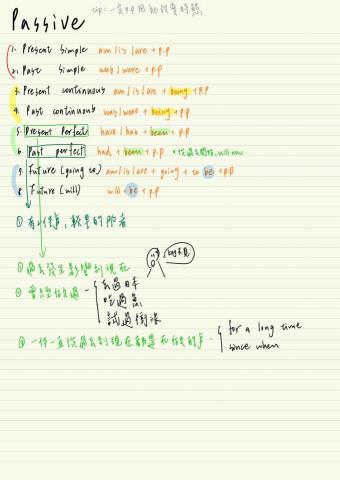 tip: 一定PP因
Passive
1. Present simple am/is/are + p.p
2. Past simple was/were + P.P.
3. Present continuous am/is/are + being + P.P
4. Past continuous was/were + being + P.P
5. Present Perfect have/has + been + P.P
6. Past perfect had + been + P.P
7. Future (going to) am/is/are + going + to be + P.P
8. Future (will) will + be + P.P
① 有2件事,較早的那者
① 過去發生影響到現在
② 曾經做過
去過日本
吃過魚
試過衝浪
③ 一件一直從過去到現在都還在做的事
for a long time
since when